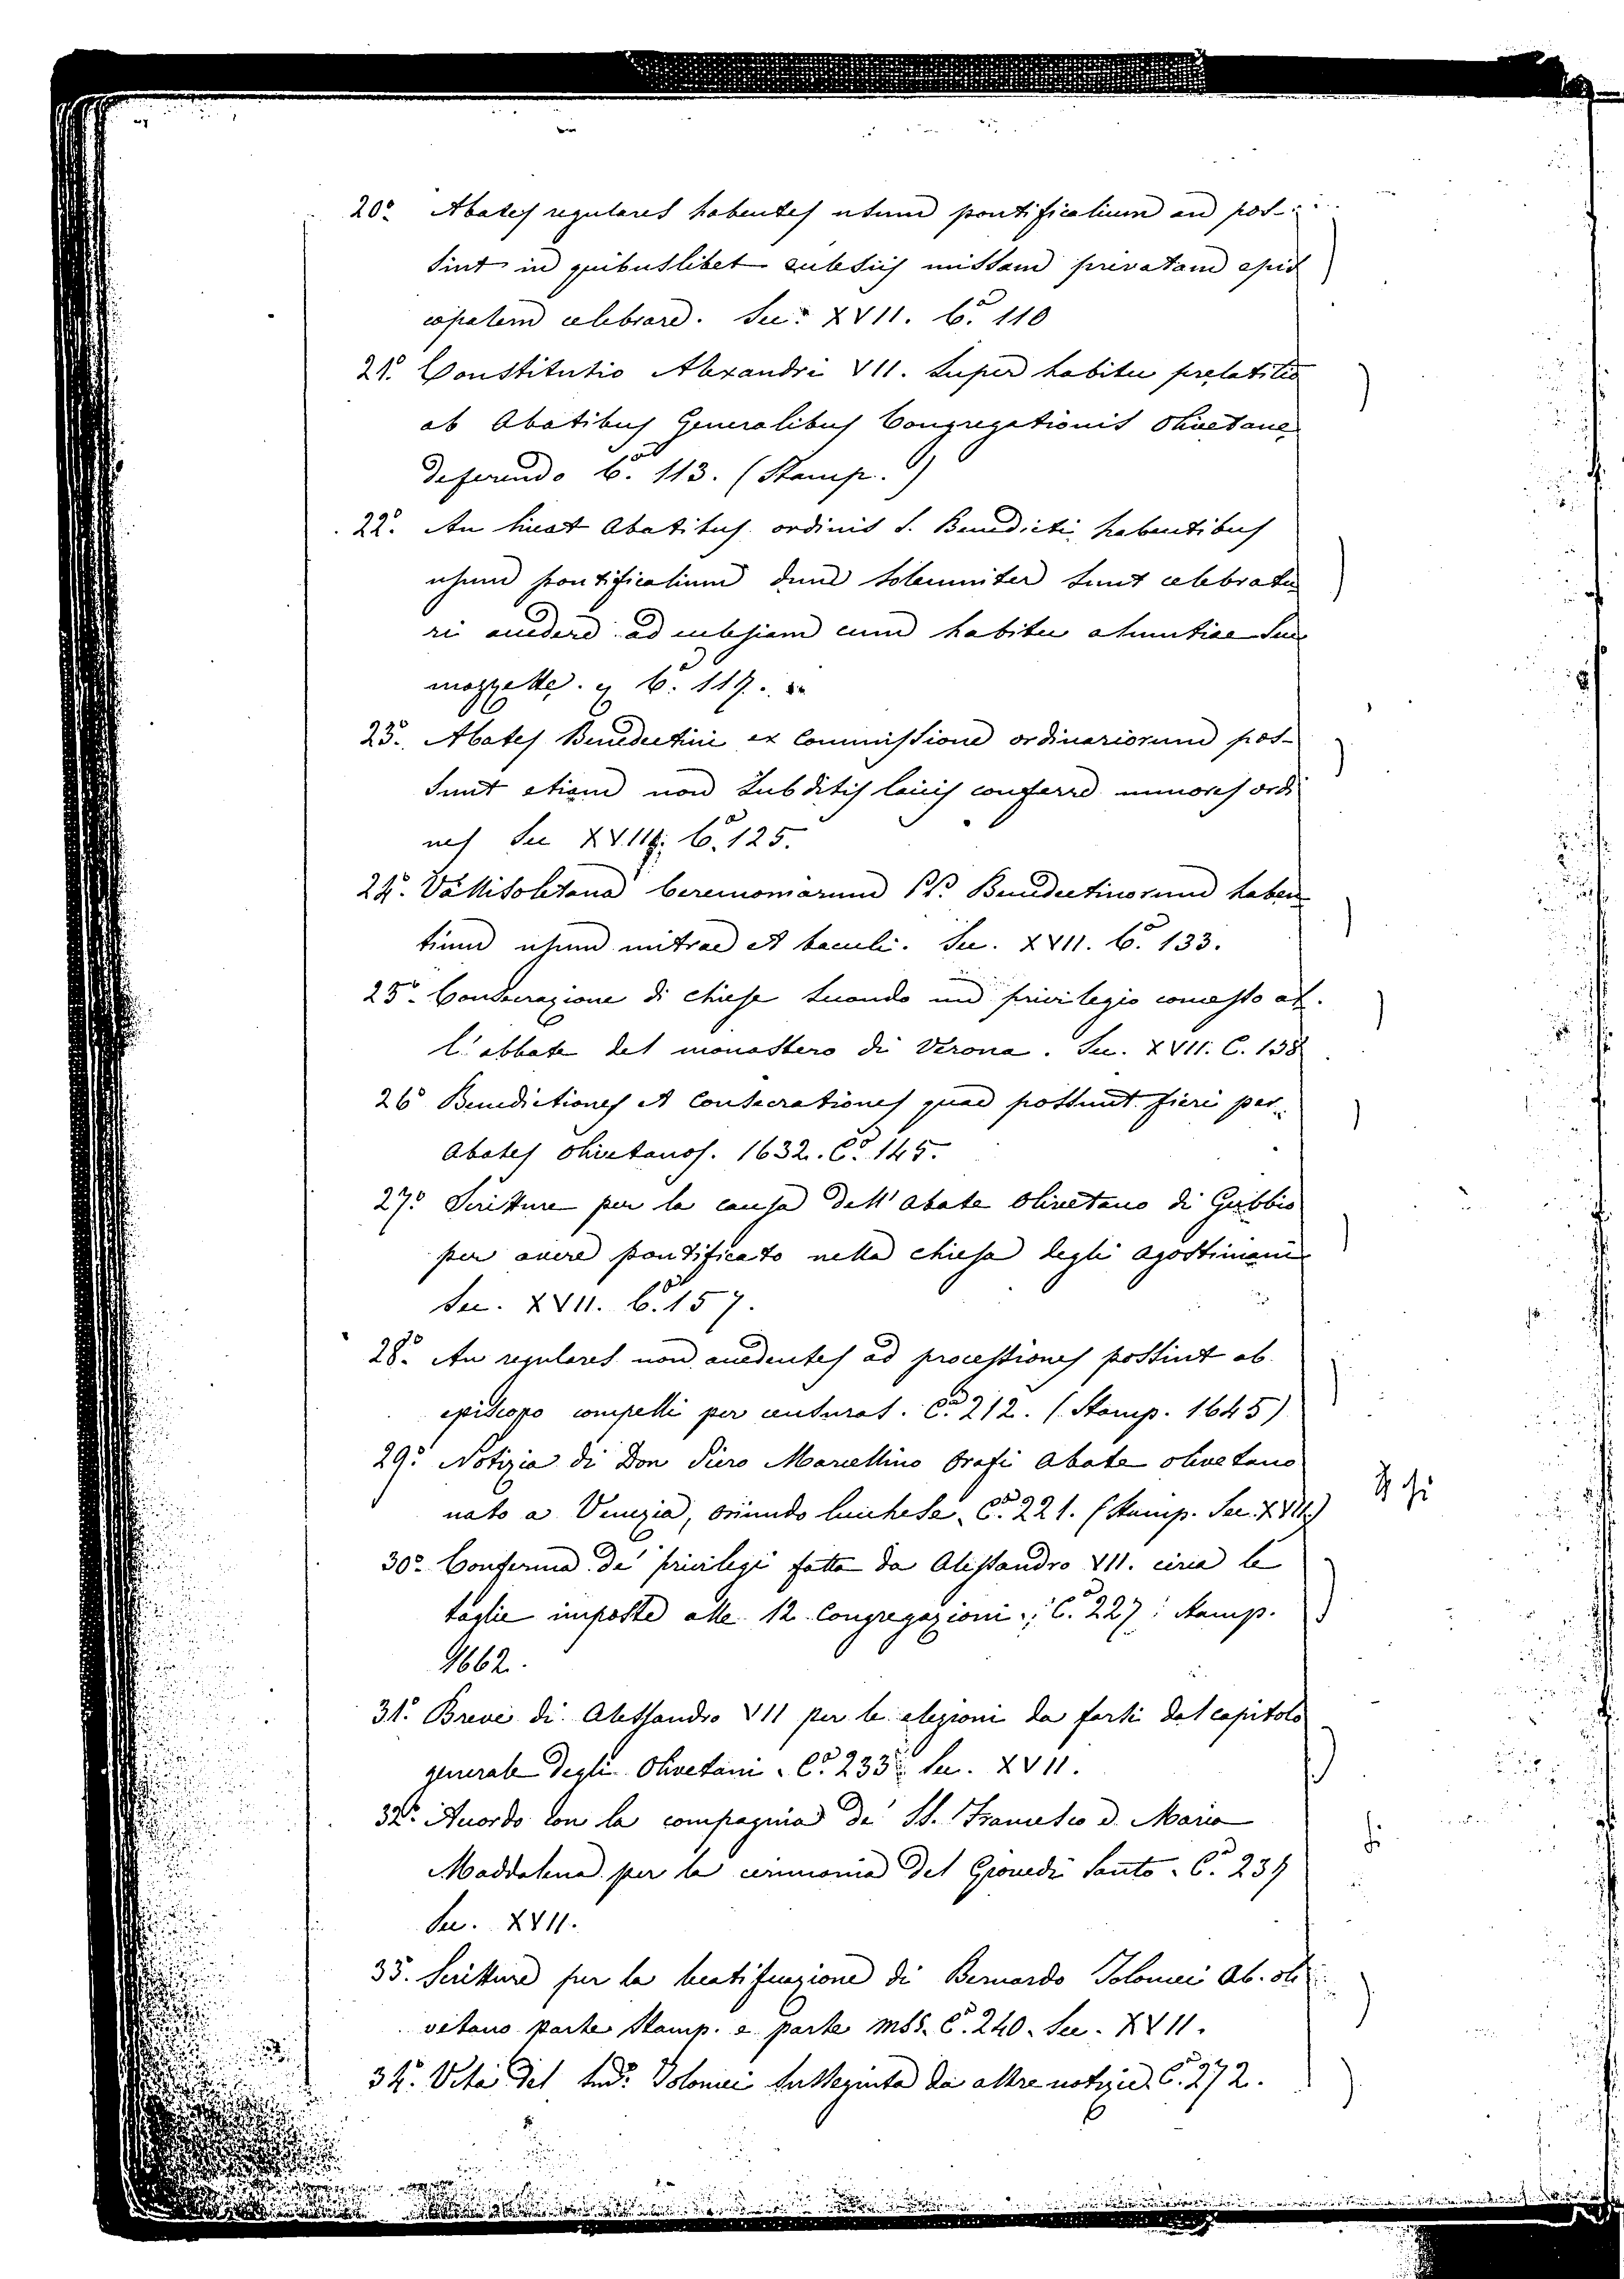 20.º Abates regulares habentes usum pontificalium an pos-
sint in quibuslibet eclesiis missam privatam epis
copalem celebrare. Sec. XVII. C.ª 110
21.º Constitutio Alexandri VII. super habitu prelatitio
ab Abatibus Generalibus Congregationis Olivetane
deferendo C.ª 113. (Stamp.)
22.º An liceat Abatibus ordinis S. Benedicti habentibus
usum pontificalium dum solemniter sunt celebratu
ri accedere ad eclesiam cum habitu
mozzette. C.ª 117.
23.º Abates Benedectini ex Commissione ordinariorum pos-
sunt etiam non subditis laicis conferre minores ordi
nes Sec XVII. C.ª 125.
24.º Vallisoletana Ceremoniarum PP. Benedectinorum haben
tium usum mitrae et baculi. Sec. XVII. C.ª 133.
25.º Consecrazione di chiese secondo un privilegio concesso al-
l'abbate del monastero di Verona. Sec. XVII. C. 138
26.º Benedictiones et Consecrationes quae possunt fieri per
Abates olivetanos. 1632. C.ª 145.
27.º Scritture per la causa dell'Abate Olivetano di Gubbio
per avere pontificato nella chiesa degli Agostiniani
Sec. XVII. C.ª 157.
28.º An regulares non accedentes ad processiones possint ab
episcopo compelli per censuras. C.ª 212. (Stamp. 1645)
29.º Notizia di Don Piero Marcellino Orafi Abate olivetano
nato a Venezia, oriundo lucchese. C.ª 221. (Stamp. Sec. XVII.)
30.º Conferma de' privilegi fatta da Alessandro VII. circa le
taglie imposte alle 12 Congregazioni; C.ª 227: stamp.
1662.
31.º Breve di Alessandro VII per le elezioni da farsi dal capitolo
generale degli Olivetani. C.ª 233. Sec. XVII.
32.º Acordo con la compagnia de' SS. Francesco e Maria
Maddalena per la cerimonia del Giovedì Santo. C.ª 239
Sec. XVII.
33. Scritture per la beatificazione di Bernardo Tolomei Ab. oli
vetano parte Stamp. e parte MSS. C.ª 240. Sec. XVII.
34.º Vita del Tolomei da altre notizie. C.ª 272.